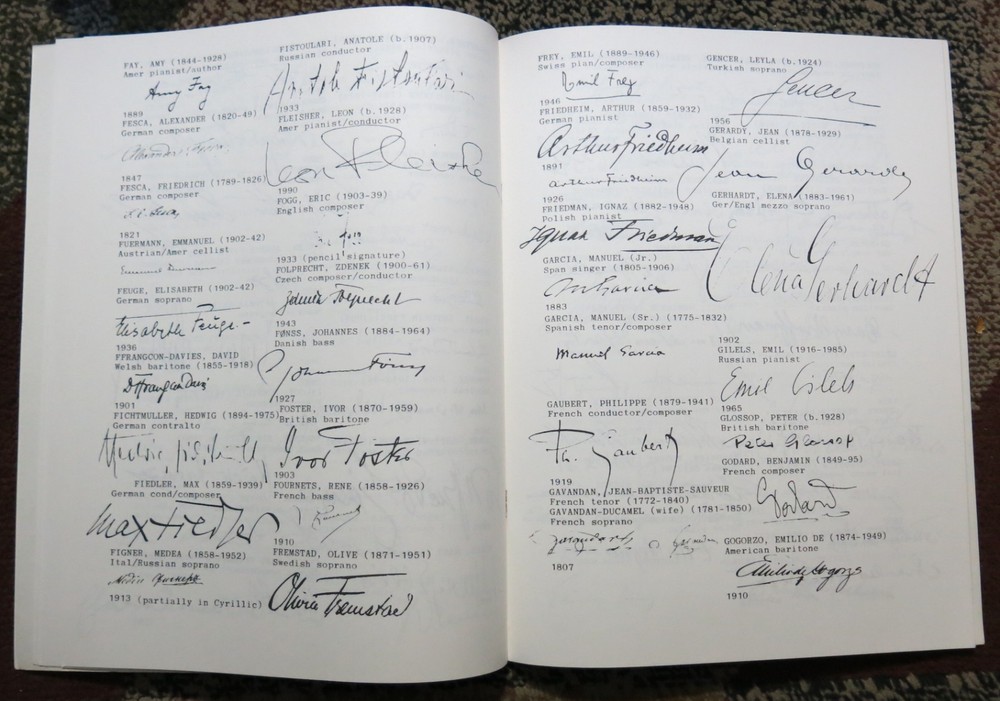 FAY, AMY (1844-1928)
Amer pianist/author
Amy Fay
1889
FESCA, ALEXANDER (1820-49)
German composer
Alexander Fesca
1847
FESCA, FRIEDRICH (1789-1826)
German composer
1821
FUERMANN, EMMANUEL (1902-42)
Austrian/Amer cellist
FEUGE, ELISABETH (1902-42)
German soprano
Elisabeth Feuge
1936
FFRANGCON-DAVIES, DAVID
Welsh baritone (1855-1918)
D Ffrangcon Davies
1901
FICHTMULLER, HEDWIG (1894-1975)
German contralto
FIEDLER, MAX (1859-1939)
German cond/composer
Max Fiedler
FIGNER, MEDEA (1858-1952)
Ital/Russian soprano
1913 (partially in Cyrillic)
FISTOULARI, ANATOLE (b.1907)
Russian conductor
Anatole Fistoulari
1933
FLEISHER, LEON (b.1928)
Amer pianist/conductor
Leon Fleisher
1990
FOGG, ERIC (1903-39)
English composer
1933 (pencil signature)
FOLPRECHT, ZDENEK (1900-61)
Czech composer/conductor
Zdeněk Folprecht
1943
FØNSS, JOHANNES (1884-1964)
Danish bass
Johannes Fönss
1927
FOSTER, IVOR (1870-1959)
British baritone
Ivor Foster
1903
FOURNETS, RENE (1858-1926)
French bass
1910
FREMSTAD, OLIVE (1871-1951)
Swedish soprano
Olive Fremstad
FREY, EMIL (1889-1946)
Swiss pian/composer
Emil Frey
1946
FRIEDHEIM, ARTHUR (1859-1932)
German pianist
Arthur Friedheim
1891
Arthur Friedheim
1926
FRIEDMAN, IGNAZ (1882-1948)
Polish pianist
Ignaz Friedman
GARCIA, MANUEL (Jr.)
Span singer (1805-1906)
M Garcia
1883
GARCIA, MANUEL (Sr.) (1775-1832)
Spanish tenor/composer
Manuel Garcia
GAUBERT, PHILIPPE (1879-1941)
French conductor/composer
Ph. Gaubert
1919
GAVANDAN, JEAN-BAPTISTE-SAUVEUR
French tenor (1772-1840)
GAVANDAN-DUCAMEL (wife) (1781-1850)
French soprano
1807
GENCER, LEYLA (b.1924)
Turkish soprano
Gencer
1956
GERARDY, JEAN (1878-1929)
Belgian cellist
Jean Gerardy
GERHARDT, ELENA (1883-1961)
Ger/Engl mezzo soprano
Elena Gerhardt
1902
GILELS, EMIL (1916-1985)
Russian pianist
Emil Gilels
1965
GLOSSOP, PETER (b.1928)
British baritone
Peter Glossop
GODARD, BENJAMIN (1849-95)
French composer
Godard
GOGORZO, EMILIO DE (1874-1949)
American baritone
Emilio de Gogorzo
1910